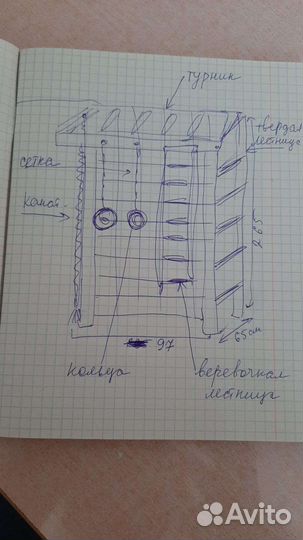 турник
твердая
лестница
сетка
канат
265
65см
97
кольца
веревочная
лестница
Avito